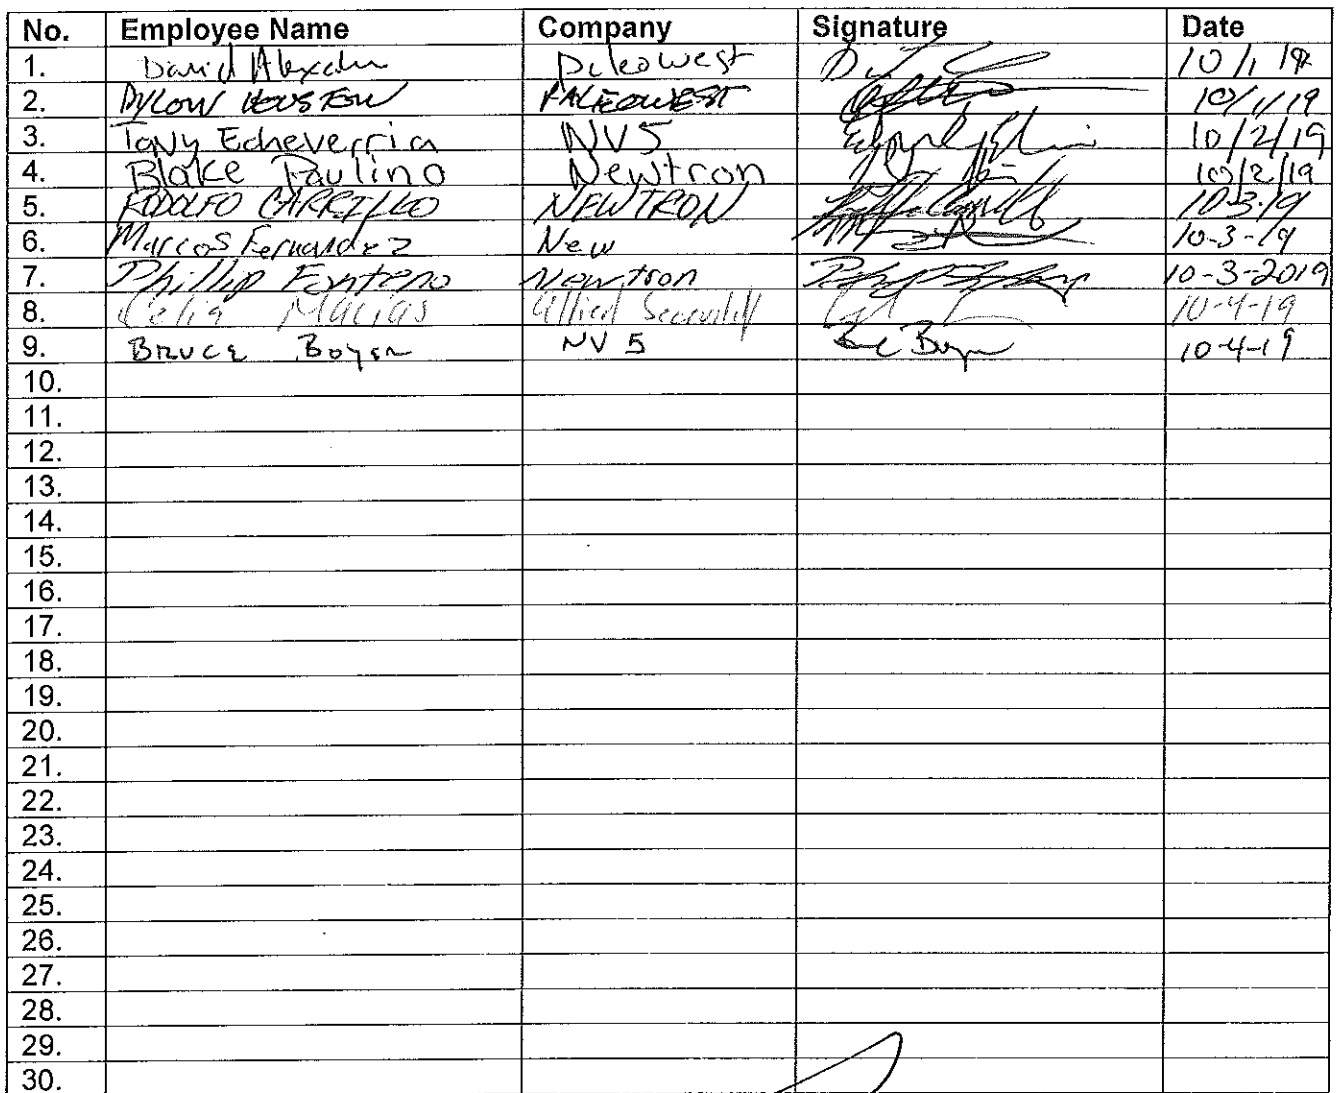 No. Employee Name Company Signature Date
1. David Paleowest 10/1/19
2. DYLON HOUSTON PALEOWEST 10/1/19
3. Tony Echeverria NV5 10/2/19
4. Blake Paulino Newtron 10/2/19
5. RODOLFO CARRILLO NEWTRON 10-3-19
6. Marcos Fernandez New 10-3-19
7. Phillip Fonteno Newtron 10-3-2019
8. Celia Macias Allied 10-4-19
9. BRUCE BOYER NV5 10-4-19
10.
11.
12.
13.
14.
15.
16.
17.
18.
19.
20.
21.
22.
23.
24.
25.
26.
27.
28.
29.
30.